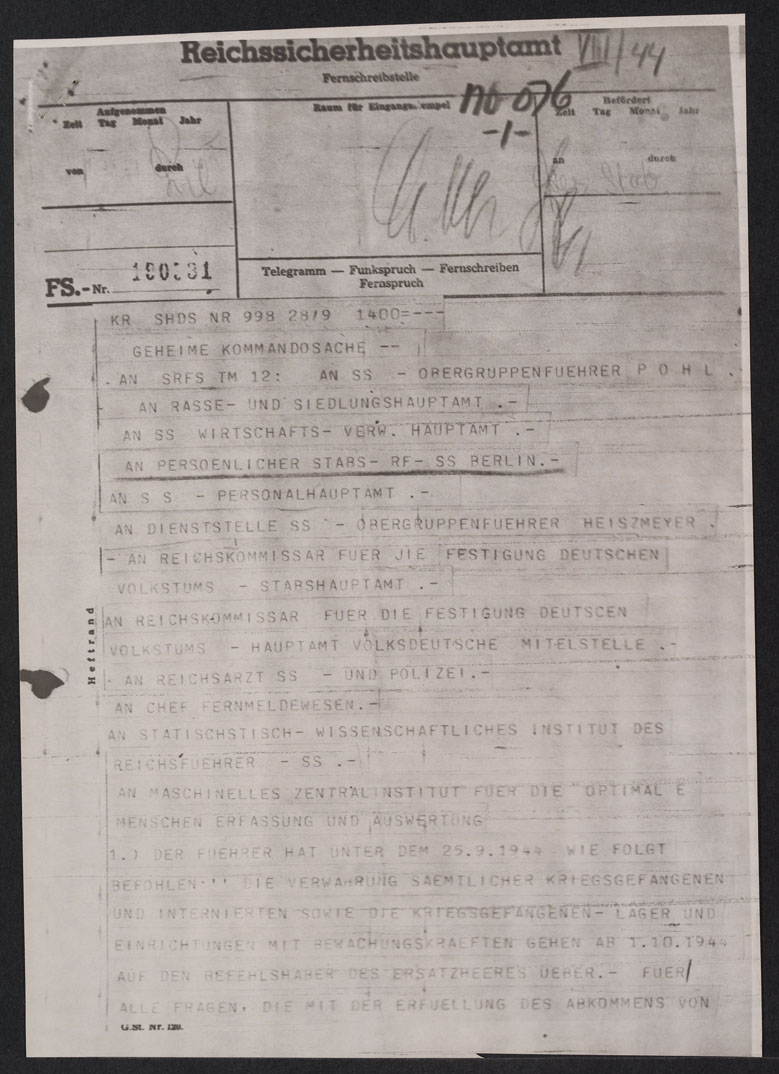 Reichssicherheitshauptamt VIII/44
Fernschreibstelle
NO 076
-1-
Aufgenommen
Zeit Tag Monat Jahr
von durch
Raum für Eingangsstempel
Befördert
Zeit Tag Monat Jahr
an durch
FS.-Nr. 190381
Telegramm — Funkspruch — Fernschreiben
Fernspruch
KR SHDS NR 998 28/9 1400=---
GEHEIME KOMMANDOSACHE --
. AN SRFS TM 12: AN SS .- OBERGRUPPENFUEHRER P O H L .
AN RASSE- UND SIEDLUNGSHAUPTAMT .-
AN SS WIRTSCHAFTS- VERW. HAUPTAMT .-
AN PERSOENLICHER STABS- RF- SS BERLIN.-
AN S S - PERSONALHAUPTAMT .-
AN DIENSTSTELLE SS - OBERGRUPPENFUEHRER HEISZMEYER .
- AN REICHSKOMMISSAR FUER JIE FESTIGUNG DEUTSCHEN
VOLKSTUMS - STABSHAUPTAMT .-
AN REICHSKOMMISSAR FUER DIE FESTIGUNG DEUTSCEN
VOLKSTUMS - HAUPTAMT VOLKSDEUTSCHE MITELSTELLE .-
. AN REICHSARZT SS - UND POLIZEI.-
AN CHEF FERNMELDEWESEN.-
AN STATISCHSTISCH- WISSENSCHAFTLICHES INSTITUT DES
REICHSFUEHRER - SS .-
AN MASCHINELLES ZENTRALINSTITUT FUER DIE OPTIMAL E
MENSCHEN ERFASSUNG UND AUSWERTUNG
1.) DER FUEHRER HAT UNTER DEM 25.9.1944 WIE FOLGT
BEFOHLEN.'' DIE VERWAHRUNG SAEMTLICHER KRIEGSGEFANGENEN
UND INTERNIERTEN SOWIE DIE KRIEGSGEFANGENEN- LAGER UND
EINRICHTUNGEN MIT BEWACHUNGSKRAEFTEN GEHEN AB 1.10.1944
AUF DEN BEFEHLSHABER DES ERSATZHEERES UEBER.- FUER/
ALLE FRAGEN, DIE MIT DER ERFUELLUNG DES ABKOMMENS VON
Heftrand
G.St. Nr. 120.